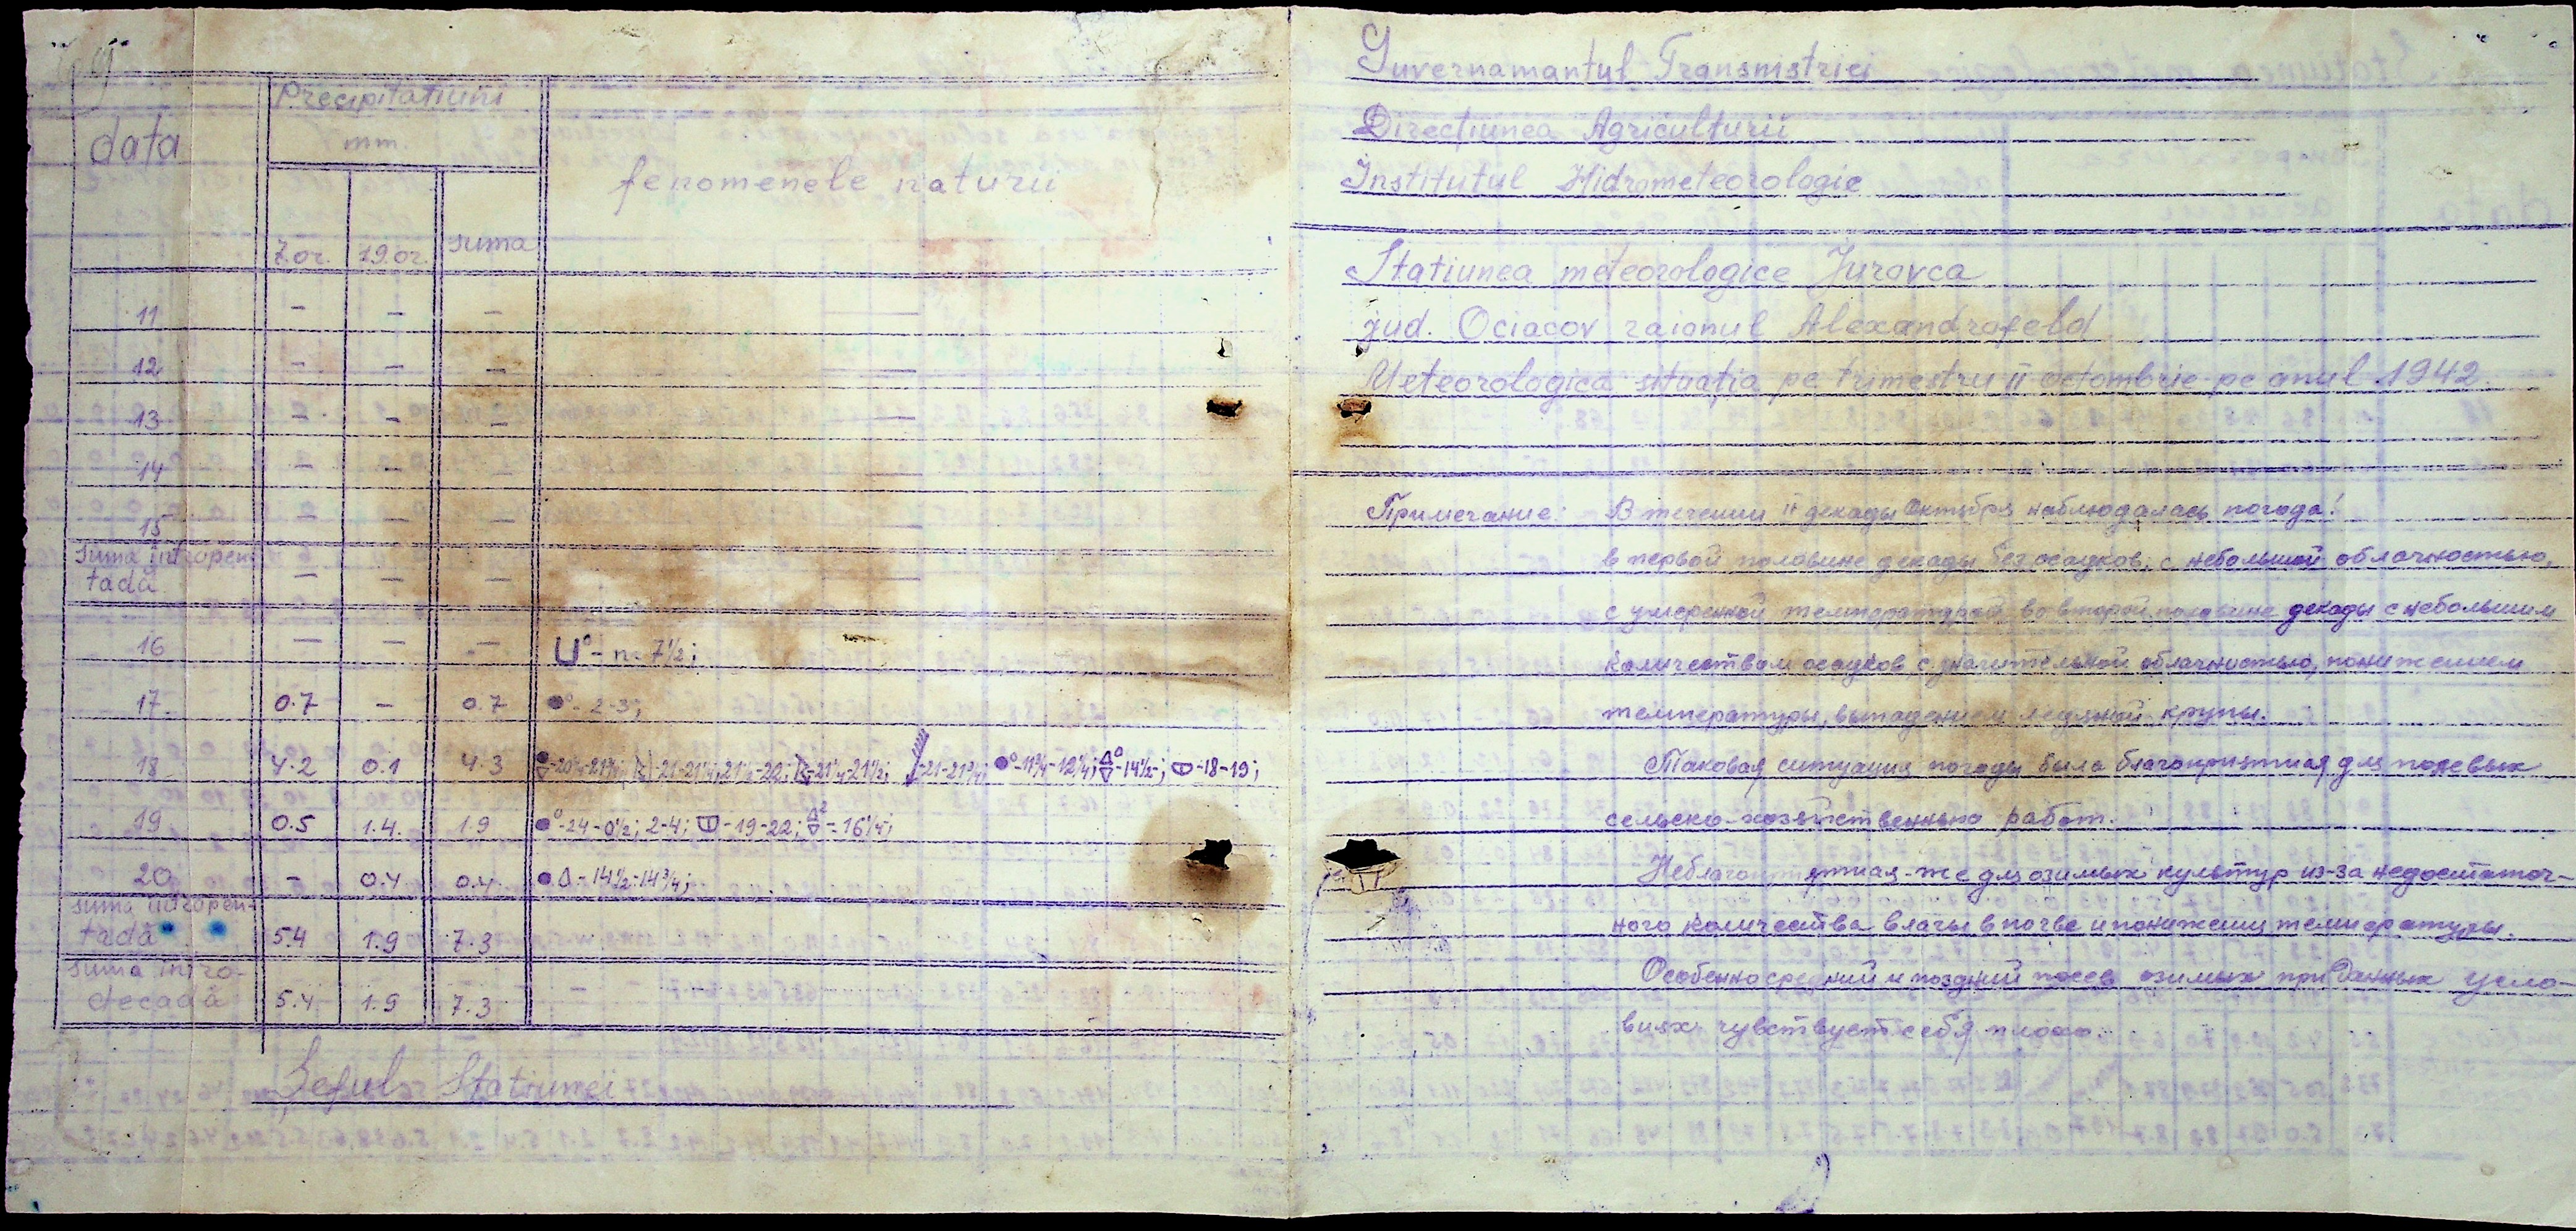 data
Precipitatiuni
mm.
fenomenele naturii
7.or. 19.or. suma
11 — — — —
12 — — — —
13 — — — —
14 — — — —
15 — — — —
suma întropen-
tadă — — — —
16 — — — U° - n - 7½;
17. 0.7 — 0.7 ●° - 2-3;
18 4.2 0.1 4.3 21-21¼; 21½-22; 21¼-21½; 21-21¾; ●°-11¾-12¼; -14½-; -18-19;
19 0.5 1.4. 1.9 ●°-24-0½; 2-4; -19-22; -16¼;
20 — 0.4 0.4 ●△-14½-14¾;
suma
tadă 5.4 1.9 7.3
suma intro-
decadă 5.4 1.9 7.3
Șeful Statiunei
Guvernamantul Transnistriei
Direcțiunea Agriculturii
Institutul Hidrometeorologic
Statiunea meteorologice Jurovca
jud. Ociacov raionul Alexandrofeld
Meteorologica situația pe trimestru II octombrie pe anul 1942
Примечание: В течении II декады Октября наблюдалась погода:
в первой половине декады без осадков, с небольшой облачностью,
с умеренной температурой во второй половине декады с небольшим
количеством осадков с значительной облачностью, понижением
температуры, выпадением ледяной крупы.
Таковая ситуация погоды была благоприятная для полевых
сельско-хозяйственных работ.
Неблагоприятная-же для озимых культур из-за недостаточ-
ного количества влаги в почве и понижении температуры.
Особенно средний и поздний посев озимых при данных усло-
виях чувствует себя плохо.